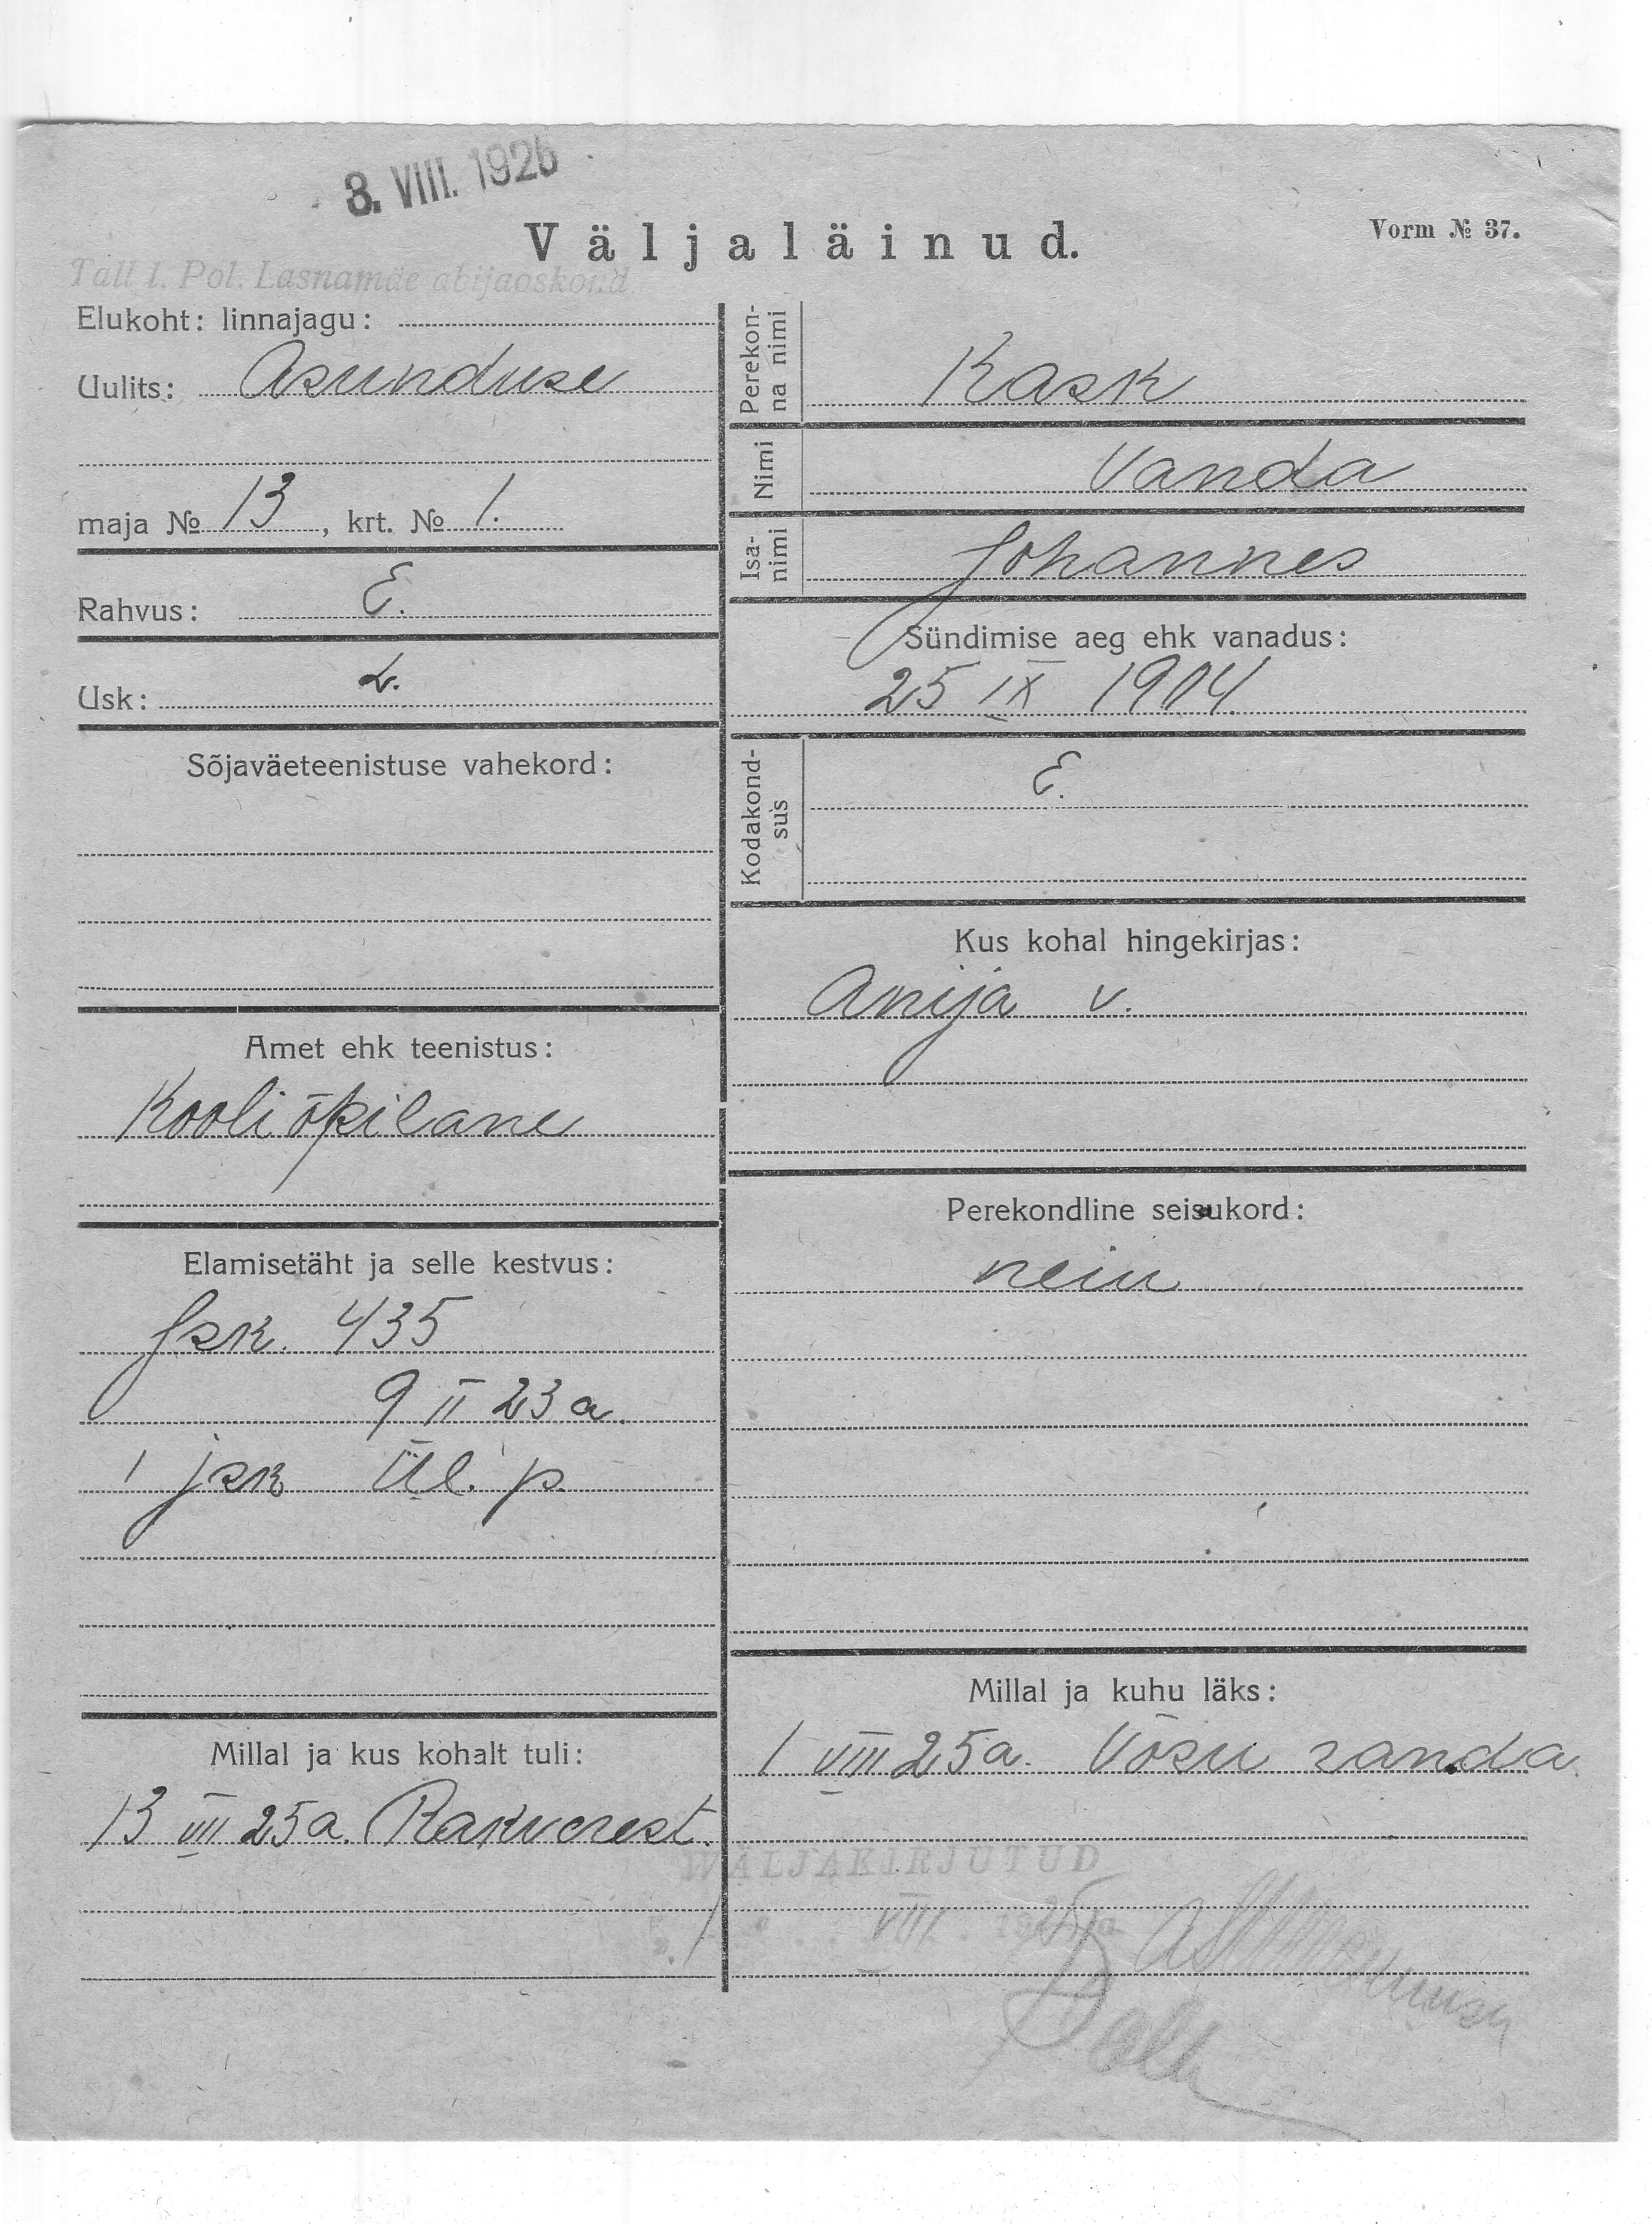 3. VIII. 1926
Väljaläinud.
Vorm № 37.
Tall I. Pol. Lasnamäe abijaoskond
Elukoht: linnajagu:
Uulits: Asunduse
maja № 13, krt. № 1.
Rahvus: E.
Usk: L.
Sõjaväeteenistuse vahekord:
Amet ehk teenistus:
Kooliõpilane
Elamisetäht ja selle kestvus:
Jsk. 435
9 II 23 a.
1 jsk Ül. p.
Millal ja kus kohalt tuli:
13 VII 25 a. Rakverest.
Perekonna nimi
Kask
Nimi
Vanda
Isanimi
Johannes
Sündimise aeg ehk vanadus:
25 IX 1904
Kodakondsus
E.
Kus kohal hingekirjas:
Anija v.
Perekondline seisukord:
neiu
Millal ja kuhu läks:
1 VIII 25 a. Võsu randa.
WÄLJAKIRJUTUD
VIII. 1925 a